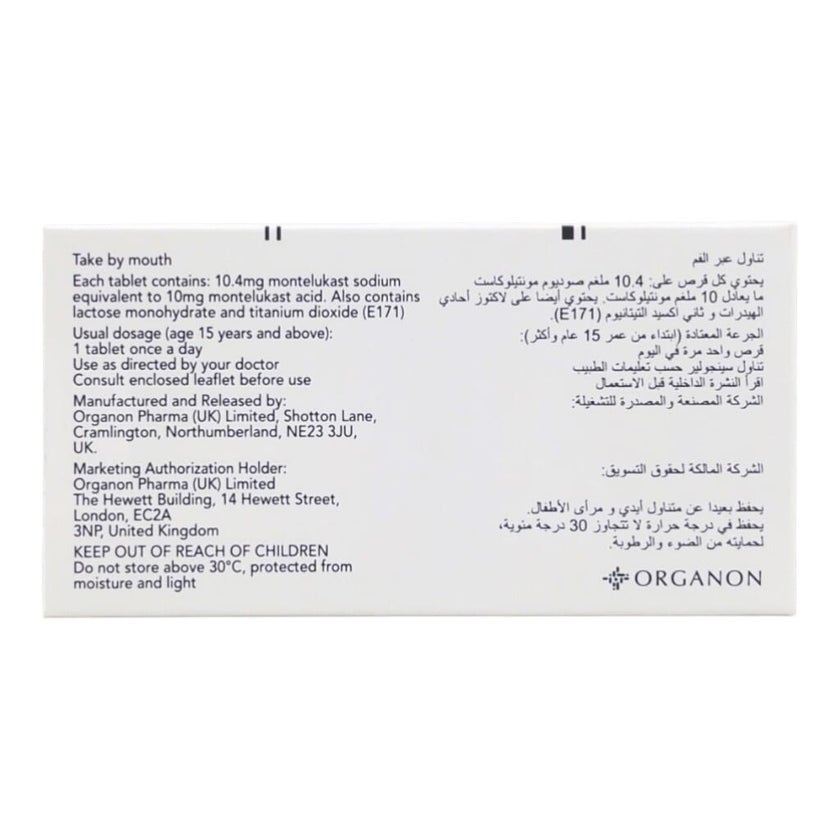 Take by mouth
Each tablet contains: 10.4mg montelukast sodium
equivalent to 10mg montelukast acid. Also contains
lactose monohydrate and titanium dioxide (E171)
Usual dosage (age 15 years and above):
1 tablet once a day
Use as directed by your doctor
Consult enclosed leaflet before use
Manufactured and Released by:
Organon Pharma (UK) Limited, Shotton Lane,
Cramlington, Northumberland, NE23 3JU,
UK.
Marketing Authorization Holder:
Organon Pharma (UK) Limited
The Hewett Building, 14 Hewett Street,
London, EC2A
3NP, United Kingdom
KEEP OUT OF REACH OF CHILDREN
Do not store above 30°C, protected from
moisture and light
تناول عبر الفم
يحتوي كل قرص على: 10.4 ملغم صوديوم مونتيلوكاست
ما يعادل 10 ملغم مونتيلوكاست. يحتوي أيضا على لاكتوز أحادي
الهيدرات و ثاني أكسيد التيتانيوم (E171).
الجرعة المعتادة (ابتداء من عمر 15 عام وأكثر):
قرص واحد مرة في اليوم
تناول سينجولير حسب تعليمات الطبيب
اقرأ النشرة الداخلية قبل الاستعمال
الشركة المصنعة والمصدرة للتشغيلة:
الشركة المالكة لحقوق التسويق:
يحفظ بعيدا عن متناول أيدي و مرأى الأطفال.
يحفظ في درجة حرارة لا تتجاوز 30 درجة مئوية،
لحمايته من الضوء والرطوبة.
ORGANON